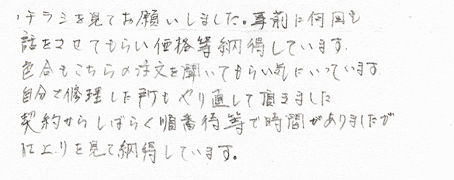 ・チラシを見てお願いしました。事前に何回も
話をさせてもらい価格等納得しています。
色合もこちらの注文を聞いてもらい気にいっています。
自分で修理した所もやり直して頂きました
契約からしばらく順番待等で時間がありましたが
仕上りを見て納得しています。